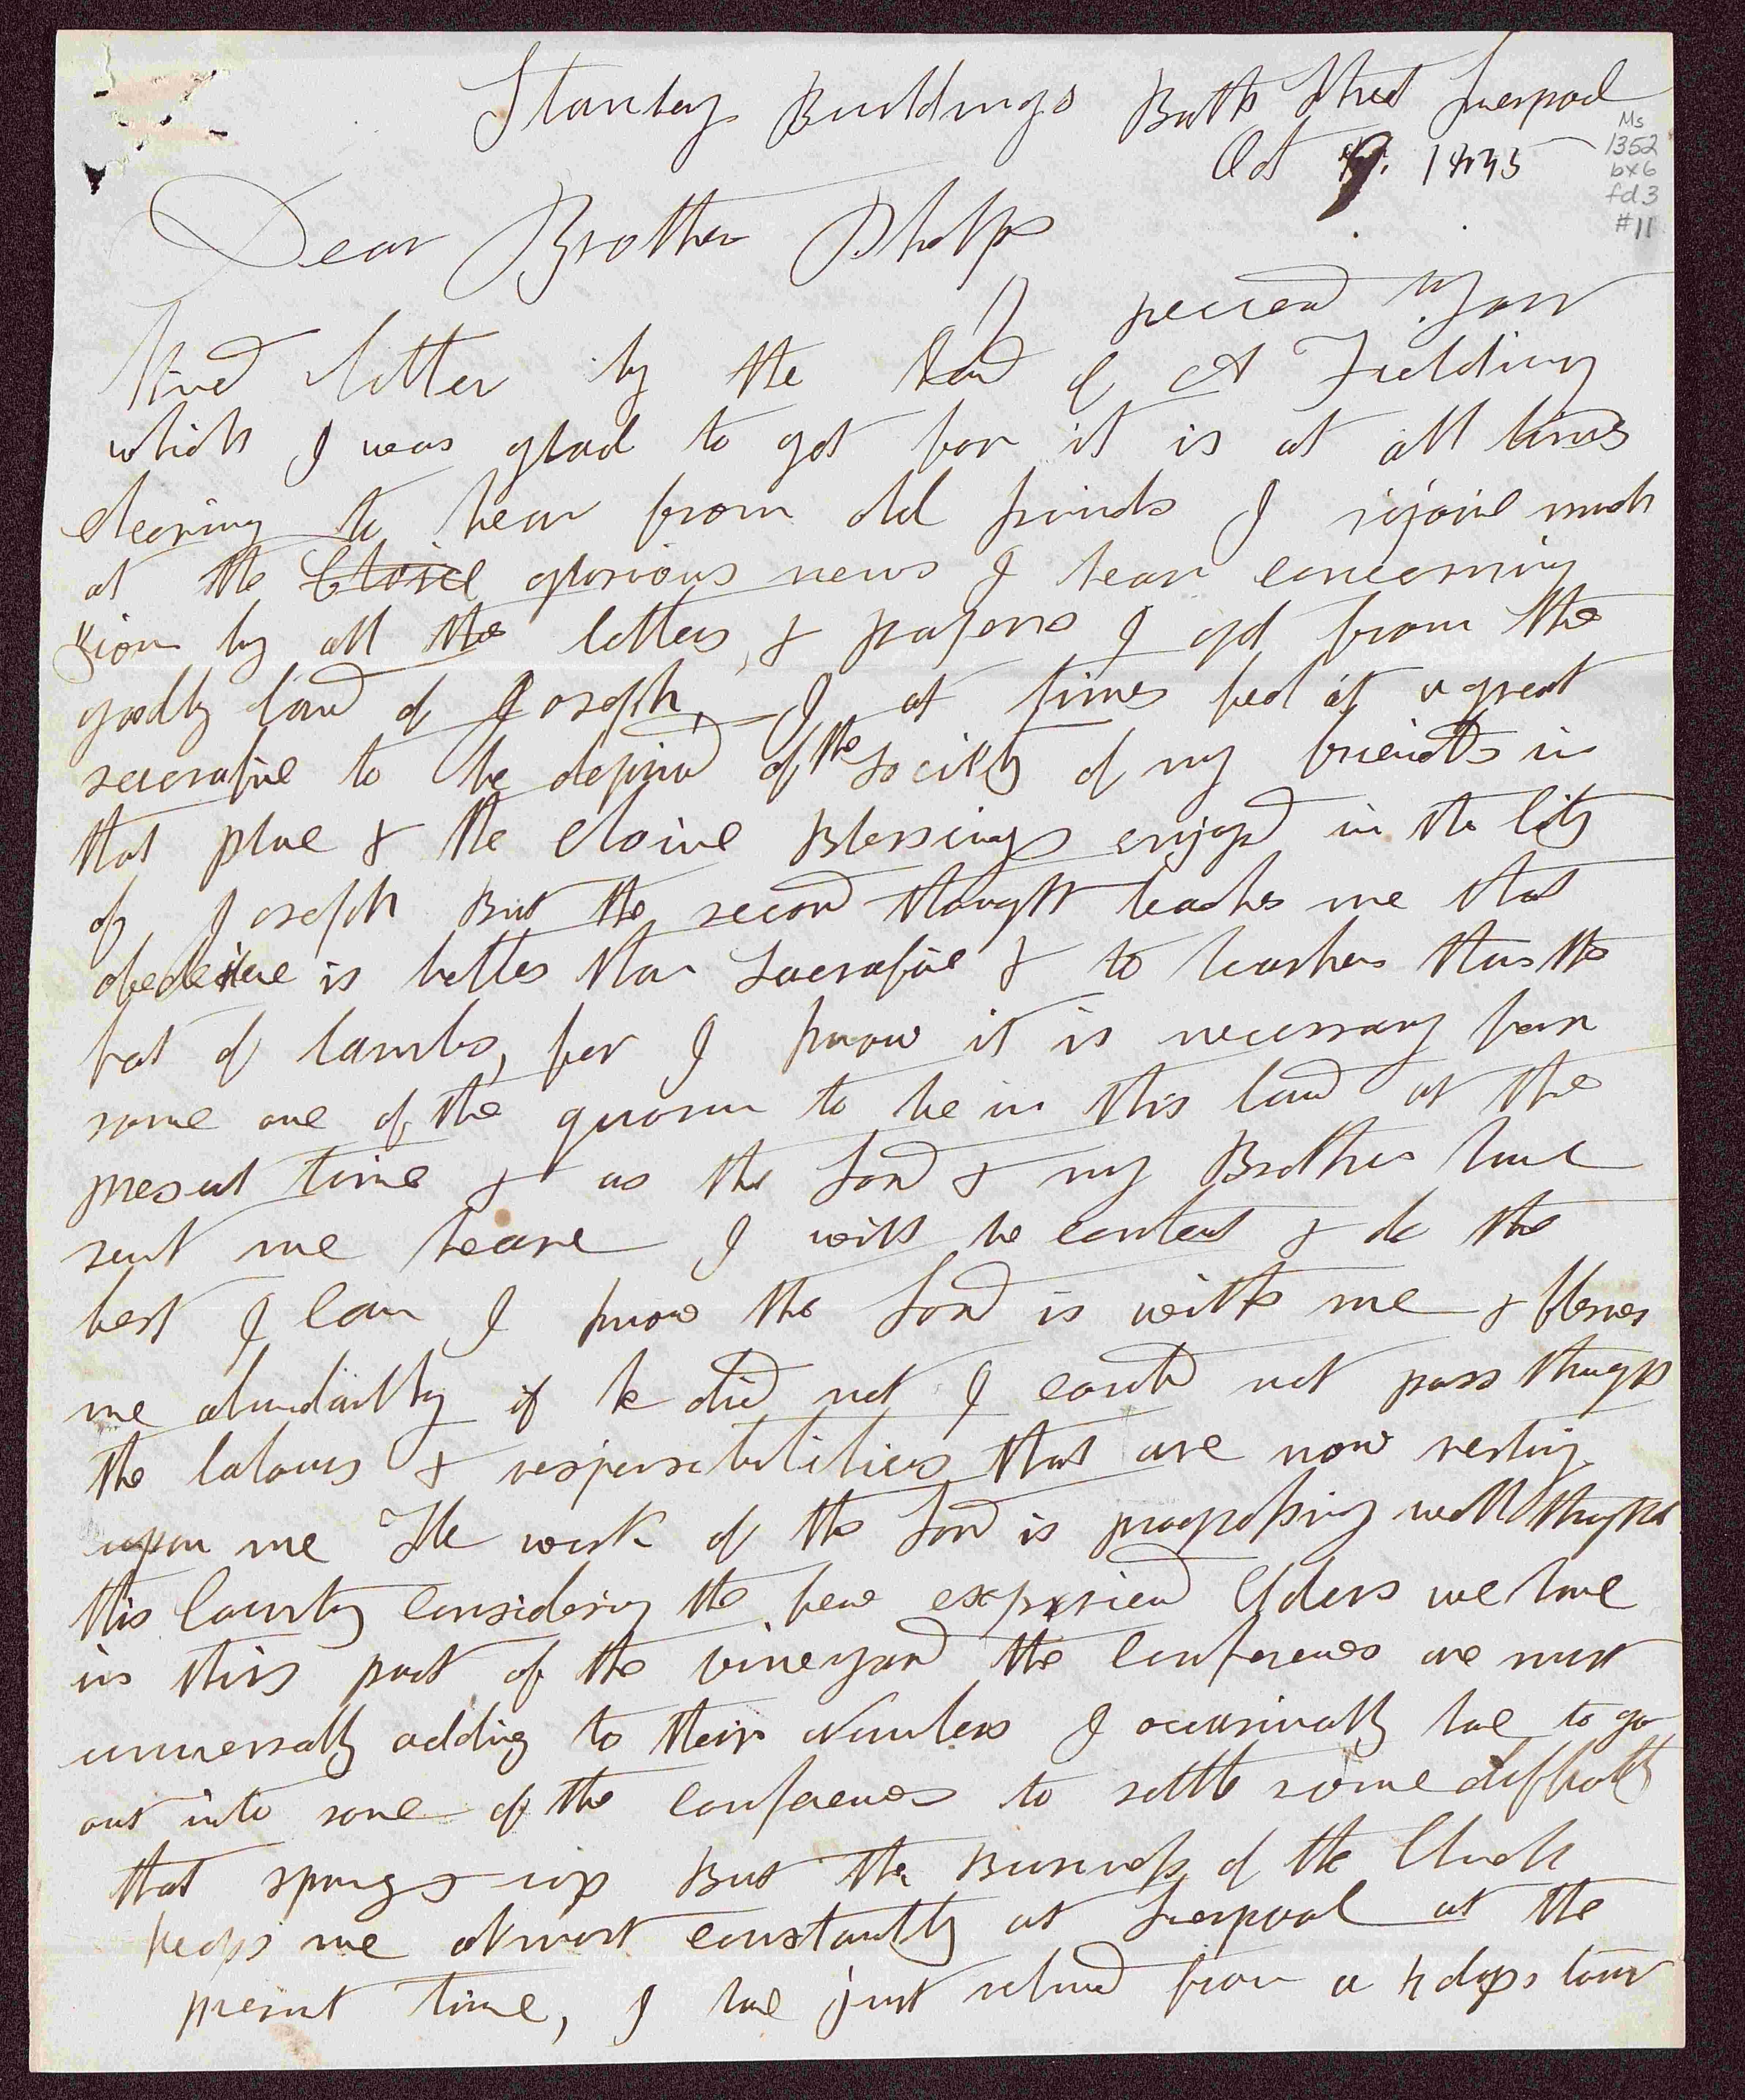 Stanley Buildings Bath Street Liverpool
Oct 9. 1845
Ms
1352
bx6
fd3
#11
Dear Brother Phelps
I received Your
kind letter by the hand of A Fielding
which I was glad to get for it is at all times
chearing to hear from old friends I rejoice much
at the Choice glorious news I hear concerning
Zion by all the letters, & papers I get from the
goodly land of Joseph, I at times feel it a great
sacrafice to be deprived of the society of my friends in
that place & the choice Blessings enjoyed in the City
of Joseph But the second thought teaches me that
obedience is better than Sacrafice & to hearken than the
fat of lambs, for I know it is necessary for
some one of the quorum to be in this land at the
present time & as the Lord & my Brethren have
sent me heare I will be content & do the
best I can I know the Lord is with me & blesses
me abundantly if he did not I could not pass through
the labours & responsibilities that are now resting
upon me The work of the Lord is progressing well through
this County considering the few experiened Elders we have
in this part of the vineyard the Conferences are most
universally adding to their Numbers I occasionally have to go
out into some of the Conferences to settle some difficulty
that springs up But the Business of the Church
keeps me almost constantly at Liverpool at the
present time, I have just returned from a days tour